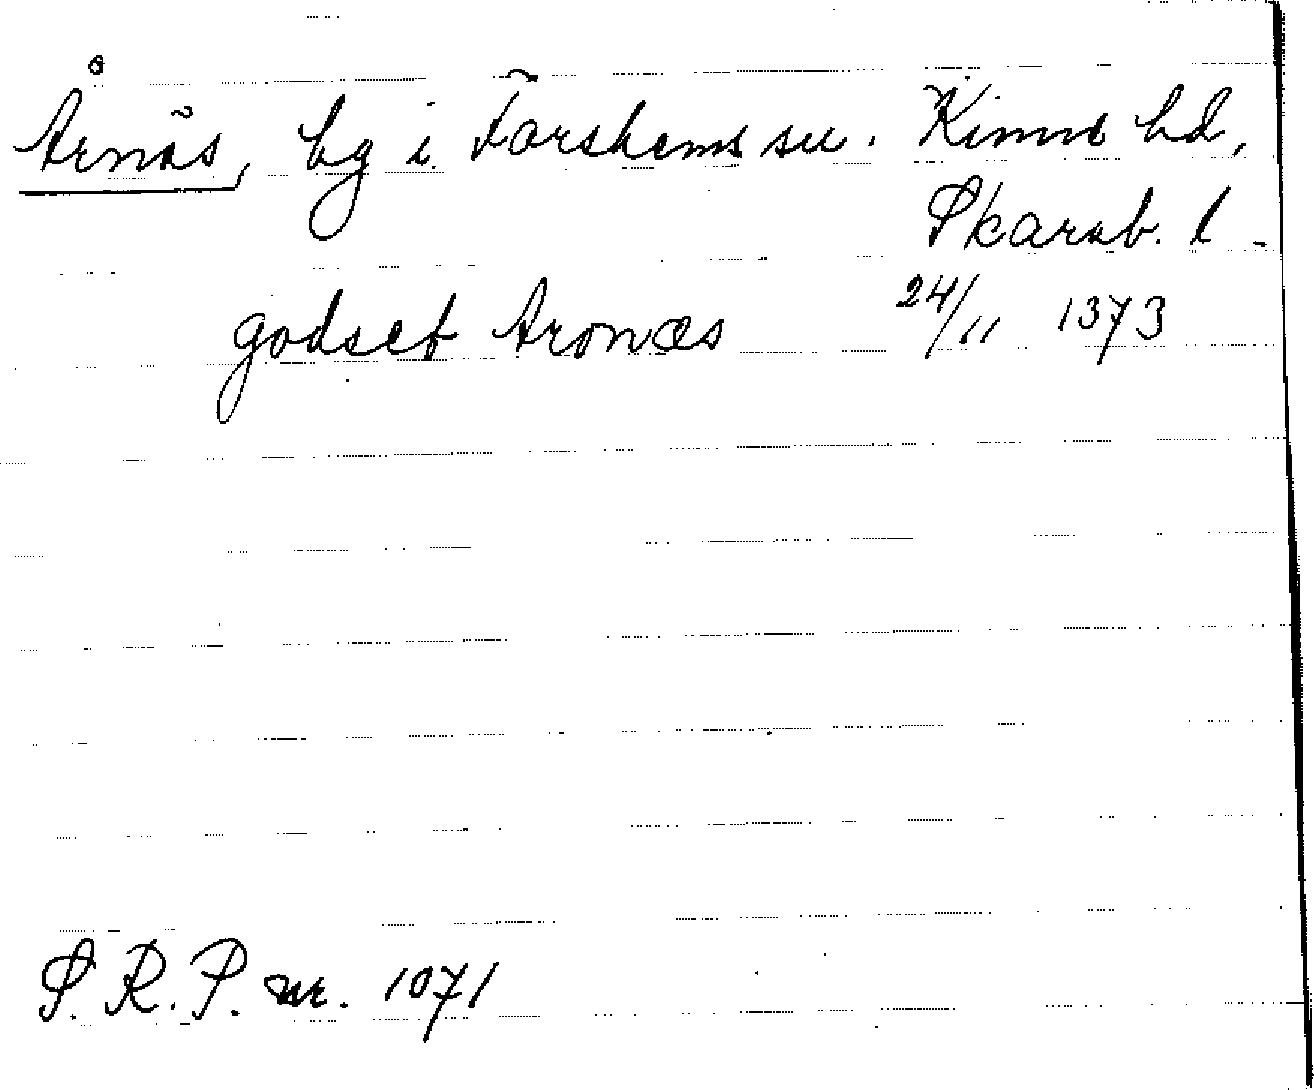 Årnäs, by i Forshems sn. Kinne hd,
Skarab. l.
godset Aronæs 24/11 1373
S. R. P. nr. 1071